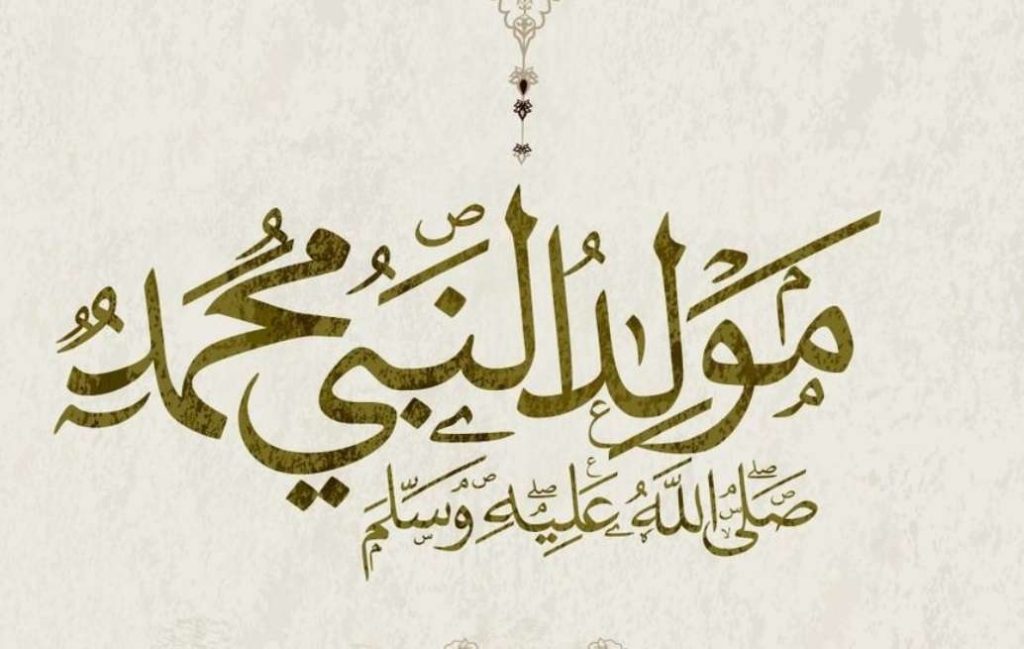 مَولِدُ النَّبي مُحمدٌ
صَلَّى اللَّهُ عَلَيْهِ وَسَلَّمَ